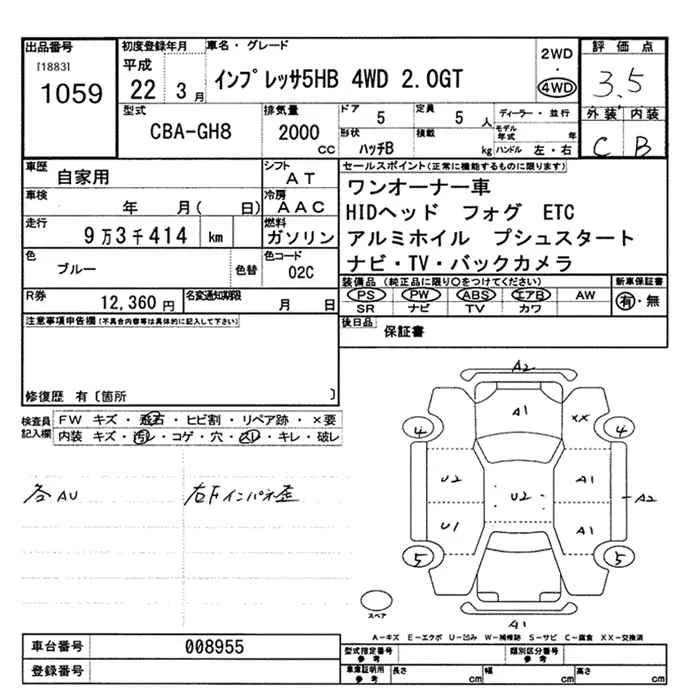 出品番号 初度登録年月 車名・グレード 2WD 評価点
[1883] 平成 ・
1059 22 3月 インプレッサ5HB 4WD 2.0GT 4WD 3.5
型式 排気量 ドア 定員 ディーラー・並行 外装 内装
CBA-GH8 2000 cc 5 5人 モデル年式 年 C B
形状 積載
ハッチB kg ハンドル 左・右
車歴 自家用 シフト AT セールスポイント(正常に機能するものに限ります)
車検 年 月( 日) 冷房 AAC ワンオーナー車
走行 9万3千414 km 燃料 ガソリン HIDヘッド フォグ ETC
アルミホイル プシュスタート
色 ブルー 色替 色コード 02C ナビ・TV・バックカメラ
装備品 (純正品に限り○をつけてください) 新車保証書
R券 12,360円 名変通知期限 月 日 PS PW ABS エアB AW 有・無
SR ナビ TV カワ
注意事項申告欄(不具合内容等は具体的に記入して下さい) 後日品 保証書
修復歴 有〔箇所 〕
検査員記入欄 FW キズ・飛石・ヒビ割・リペア跡・×要
内装 キズ・汚レ・コゲ・穴・スレ・キレ・破レ
各AU 右Fインパネ歪
A2
A1 XX
4 4
U2 A1
U2 A2
U1 A1
5 5
スペア
A1
A-キズ E-エクボ U-凹み W-補修跡 S-サビ C-腐食 XX-交換済
車台番号 008955 型式指定番号 参考 類別区分番号 参考
登録番号 車庫証明用 参考 長さ cm 幅 cm 高さ cm